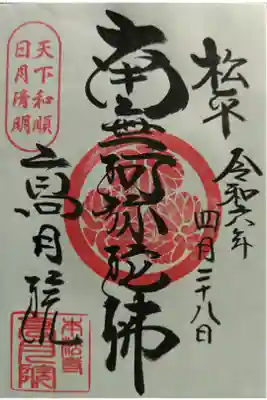 松平
令和六年
四月二十八日
南無阿弥陀佛
天下和順
日月清明
高月院
本松山
高月院